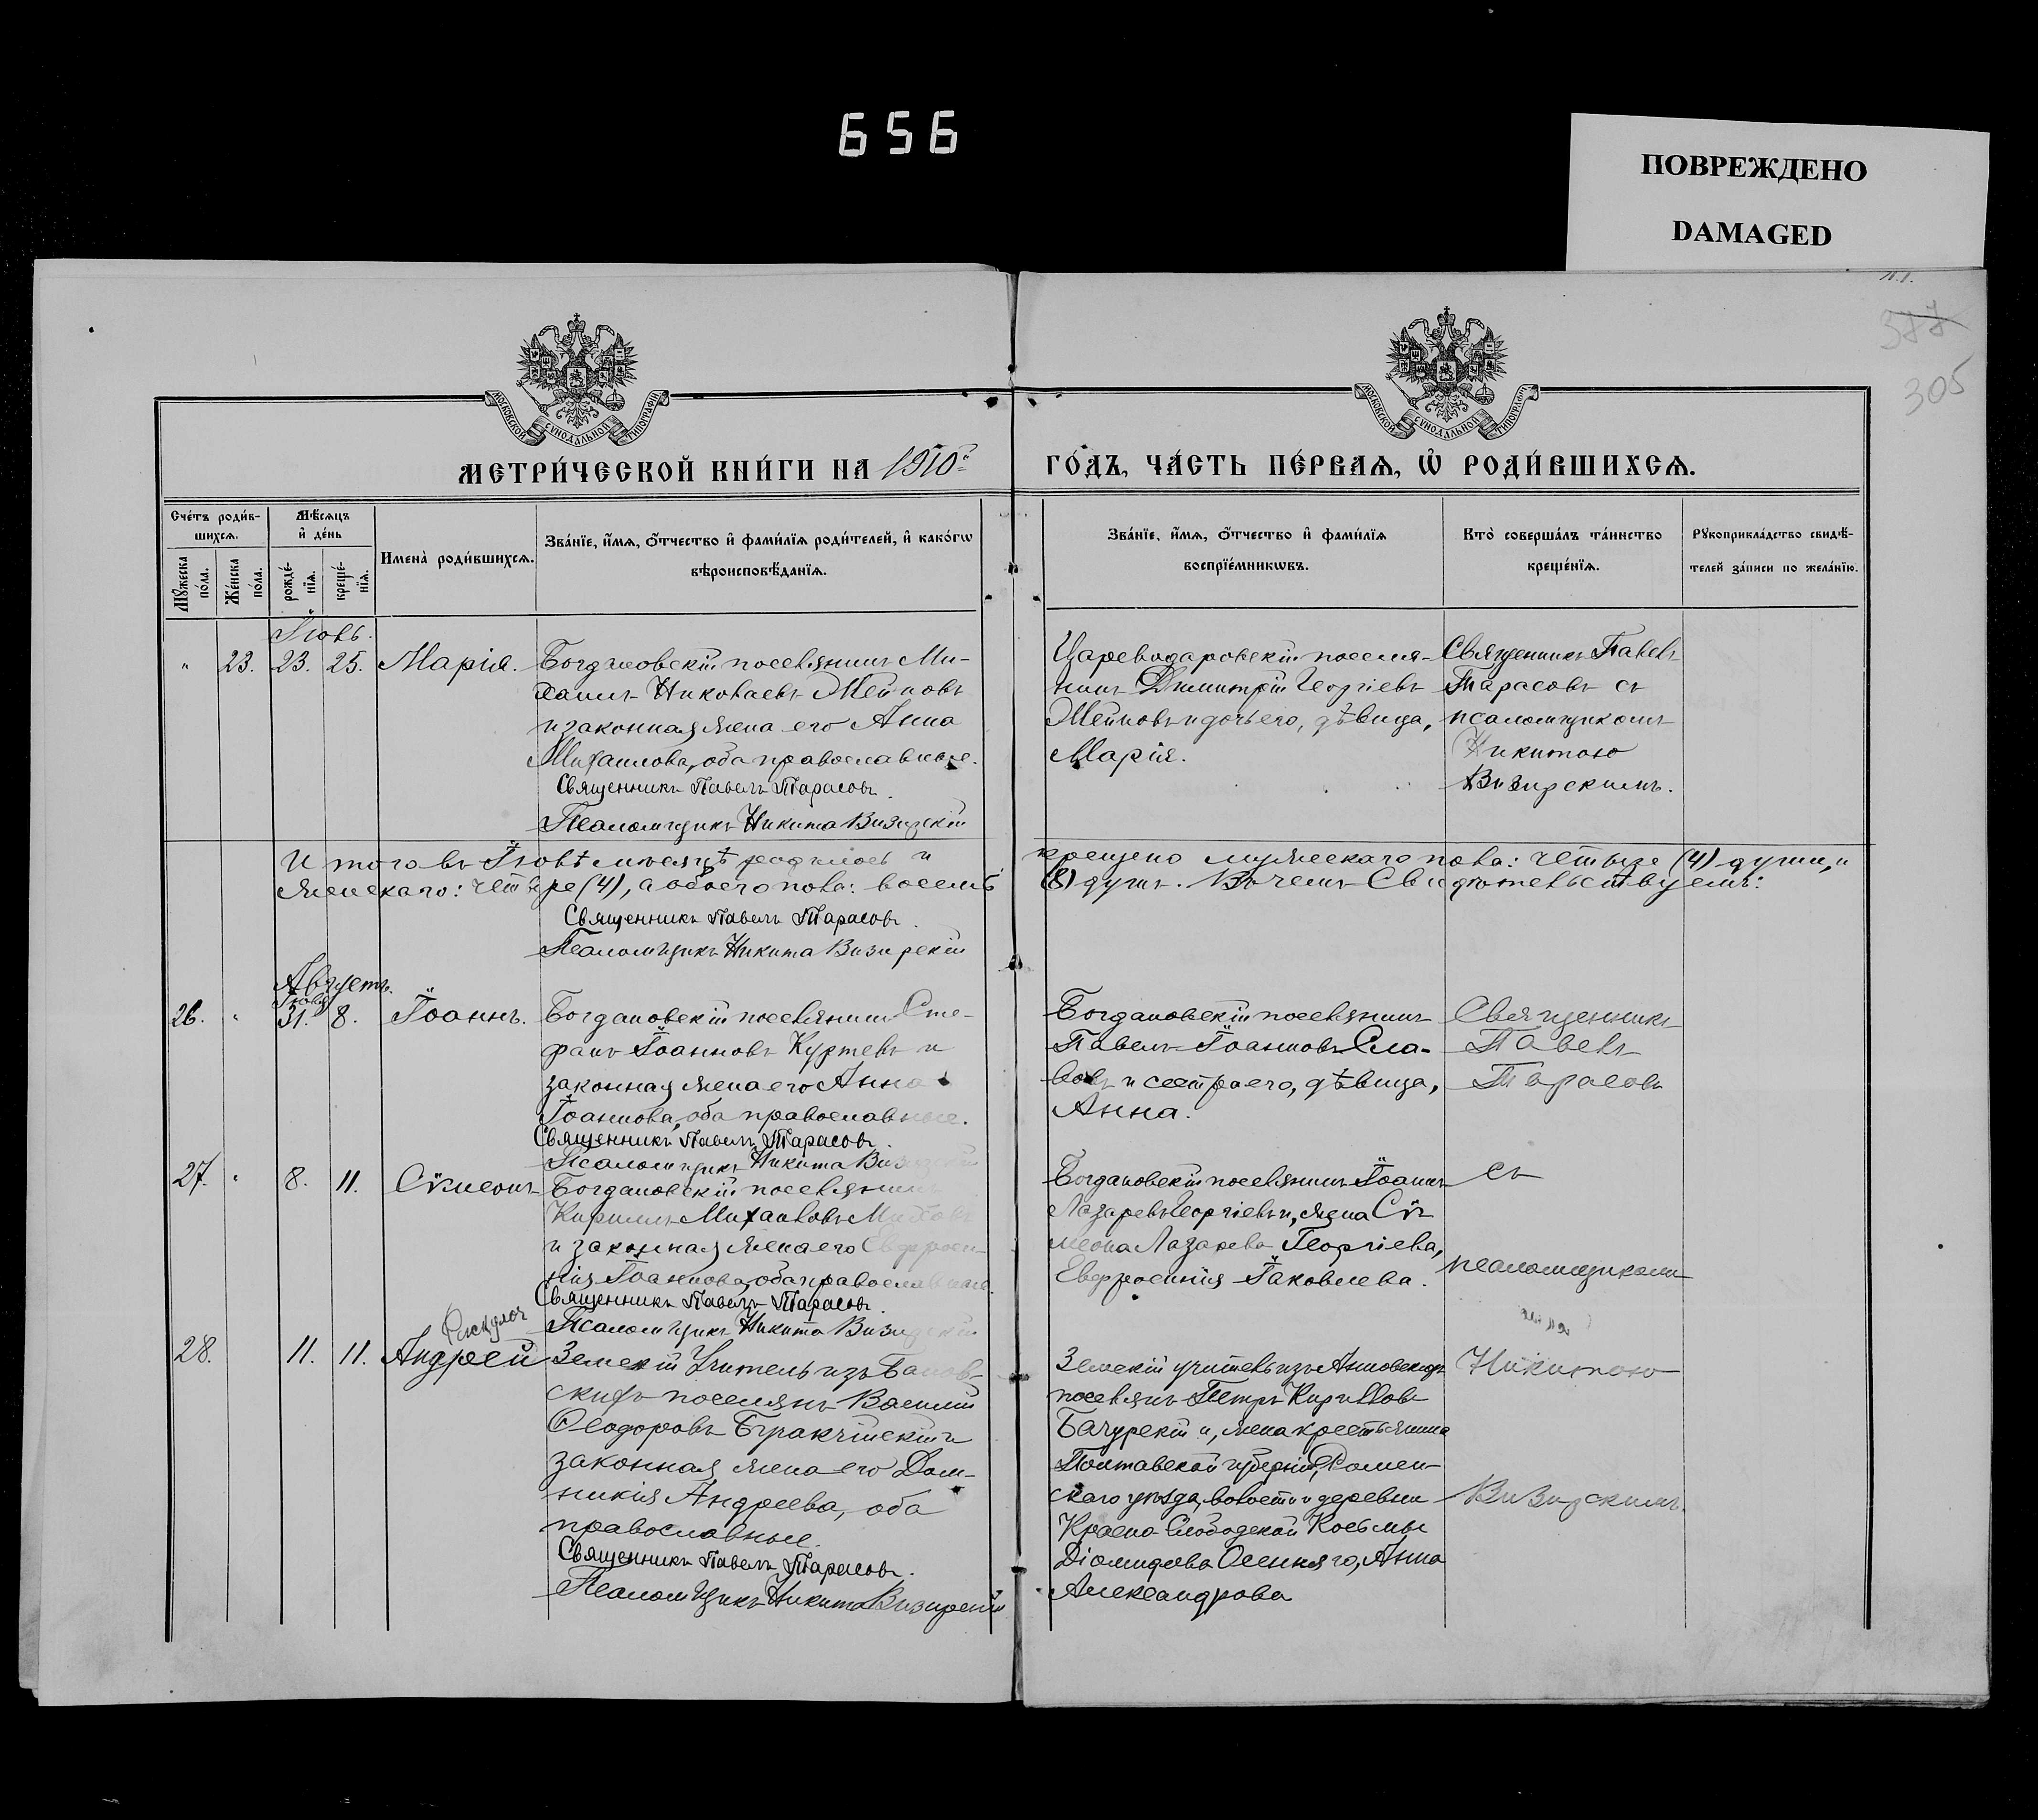 656
ПОВРЕЖДЕНО
DAMAGED
377
305
МОСКОВСКОЙ СѴНОДАЛЬНОЙ ТИПОГРАФІИ
МОСКОВСКОЙ СѴНОДАЛЬНОЙ ТИПОГРАФІИ
МЕТРИ́ЧЕСКОЙ КНИ́ГИ НА 1910й
ГО́ДЪ, ЧА́СТЬ ПЕ́РВАѦ, Ѡ҆ РОДИ́ВШИХСѦ.
Сче́тъ роди́в-
шихсѧ.
Мѣ́сѧцъ
и҆ де́нь
Мꙋ́жеска
по́ла.
Же́нска
по́ла.
рожде́-
нїѧ.
креще́-
нїѧ.
Имена̀ роди́вшихсѧ.
Зва́нїе, и҆́мѧ, ѻ҆́тчество и҆ фами́лїѧ роди́телей, и҆ како́гѡ
вѣроисповѣ́данїѧ.
Зва́нїе, и҆́мѧ, ѻ҆́тчество и҆ фами́лїѧ
воспрїе́мникѡвъ.
Кто̀ соверша́лъ та́инство
креще́нїѧ.
Рꙋкоприкла́дство свидѣ́-
телей за́писи по жела́нїю.
Іюль.
" 23. 23. 25. Марія.
Богдановскій поселянинъ Ми-
хаилъ Николаевъ Жейновъ
и законная жена его Анна
Михаилова, оба православные.
Священникъ Павелъ Тарасовъ.
Псаломщикъ Никита Визирскій
Царевдаровскій поселя-
нинъ Димитрій Георгіевъ
Жейновъ и дочь его, дѣвица,
Марія.
Священникъ Павелъ
Тарасовъ съ
псаломщикомъ
Никитою
Визирскимъ.
Итого въ Іюлѣ мѣсяцѣ родилось и крещено мужескаго пола: четыре (4) души, и
женскаго: четыре (4), а обоего пола: восемь (8) душъ. Въ чемъ Свидѣтельствуемъ:
Священникъ Павелъ Тарасовъ.
Псаломщикъ Никита Визирскій
Августъ.
Іюля
26. " 31. 8. Іоаннъ.
Богдановскій поселянинъ Сте-
фанъ Іоанновъ Куртевъ и
законная жена его Анна
Іоаннова, оба православные.
Священникъ Павелъ Тарасовъ.
Псаломщикъ Никита Визирскій
Богдановскій поселянинъ
Павелъ Іоанновъ Сла-
вовъ и сестра его, дѣвица,
Анна.
Священникъ
Павелъ
Тарасовъ
27. " 8. 11. Сѵмеонъ
Богдановскій поселянинъ
Кириллъ Михаиловъ
и законная жена его Евфроси-
нія Іоаннова, оба православные.
Священникъ Павелъ Тарасовъ.
Псаломщикъ Никита Визирскій
Богдановскій поселянинъ Іоаннъ
Лазаревъ Георгіевъ и, жена Сѵ-
меона Лазарева Георгіева,
Евфросинія Іаковлева.
съ
псаломщикомъ
28. 11. 11. Андрей
Земскій Учитель изъ
скихъ поселянъ Василій
Ѳеодоровъ Буракчійскій и
законная жена его Дом-
никія Андреева, оба
православные.
Священникъ Павелъ Тарасовъ.
Псаломщикъ Никита Визирскій
Земскій учитель изъ Анновскихъ
поселянъ Петръ Кирилловъ
Бачурскій и, жена крестьянина
Полтавской губерніи, Ромен-
скаго уѣзда, волости и деревни
Красно-Слободской Косьмы
Діомидова Осенняго, Анна
Александрова
Никитою
Визирскимъ.